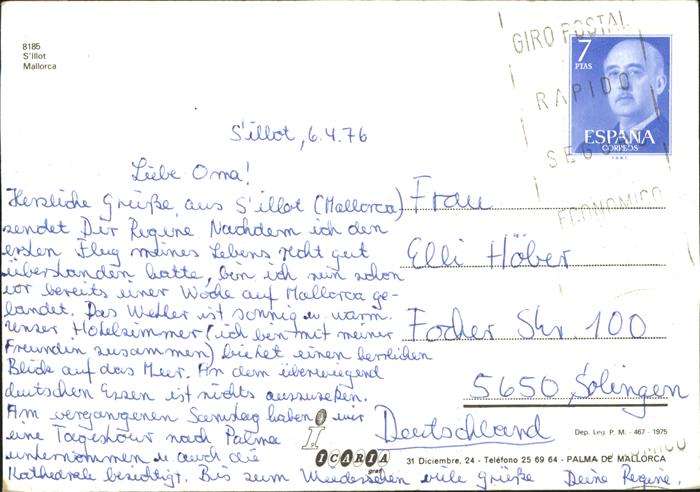 8185
S'illot
Mallorca
GIRO POSTAL
RAPIDO
SEGURO
ECONOMICO
7
PTAS
ESPAÑA
CORREOS
S'illot, 6.4.76
Liebe Oma!
Herzliche Grüße aus S'illot (Mallorca)
sendet Dir Regine. Nachdem ich den
ersten Flug meines Lebens recht gut
überstanden hatte, bin ich nun schon
vor bereits einer Woche auf Mallorca ge-
landet. Das Wetter ist sonnig u. warm.
Unser Hotelzimmer (ich bin mit meiner
Freundin zusammen) bietet einen herrlichen
Blick auf das Meer. An dem überwiegend
deutschen Essen ist nichts auszusetzen.
Am vergangenen Samstag haben wir
eine Tagestour nach Palma
unternommen u. auch die
Kathedrale besichtigt. Bis zum Wiedersehen viele Grüße Deine Regine.
Frau
Elli Höber
Focher Str. 100
5650 Solingen
Deutschland
Dep. Leg. P. M. - 467 - 1975
ICARIA
graf
31 Diciembre, 24 - Teléfono 25 69 64 - PALMA DE MALLORCA